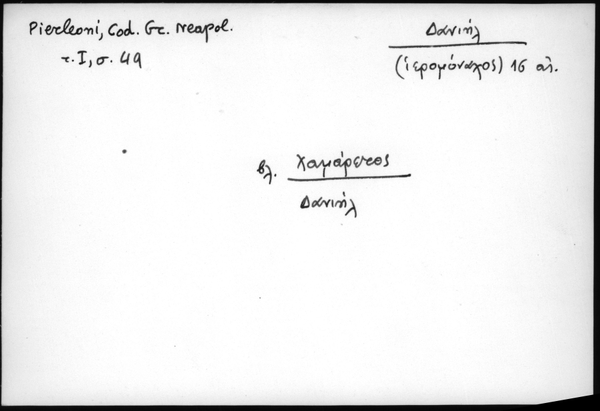 Pierleoni, Cod. Gr. Neapol.
τ. I, σ. 49
Δανιήλ
(ἱερομόναχος) 16 αἰ.
βλ. Χαμάρετος
Δανιήλ